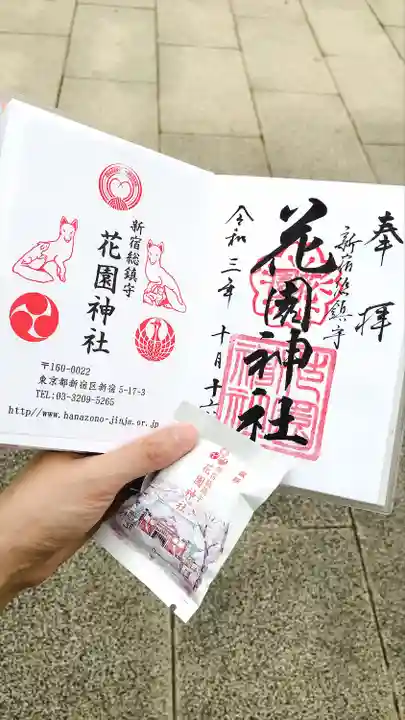 奉拝
新宿総鎮守
花園神社
令和三年十月十六
新宿総鎮守
花園神社
〒160-0022
東京都新宿区新宿5-17-3
TEL:03-3209-5265
http//www.hanazono-jinja.or.jp
新宿総鎮守
花園神社